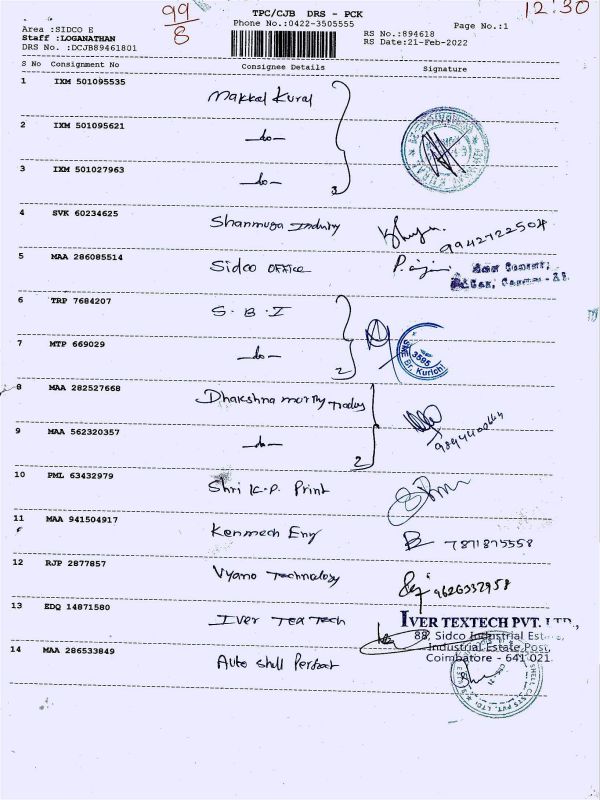 99
8
TPC/CJB DRS - PCK
12:30
Area :SIDCO E
Phone No.:0422-3505555
Page No.:1
Staff :LOGANATHAN
RS No.:894618
DRS No. :DCJB89461801
RS Date:21-Feb-2022
S No Consignment No Consignee Details Signature
1 IXM 501095535 Makkal Kural
2 IXM 501095621 —do—
3 IXM 501027963 —do—
3
4 SVK 60234625 Shanmuga Industry
9942722504
5 MAA 286085514 Sidco OFFICE
6 TRP 7684207 S. B. I
7 MTP 669029 —do—
2
3595
SME Br. Kurichi
8 MAA 282527668 Dhakshna murthy Tradng
9 MAA 562320357 —do—
2
10 PML 63432979 Shri K.P. Print
11 MAA 941504917 Kenmech Eng 7871875558
12 RJP 2877857 Vyano Technology 9626337958
13 EDQ 14871580 Iver Tex Tech
IVER TEXTECH PVT. LTD.,
88, Sidco Industrial Estate,
Industrial Estate Post,
Coimbatore - 641 021
14 MAA 286533849 Auto Shell Perfoat